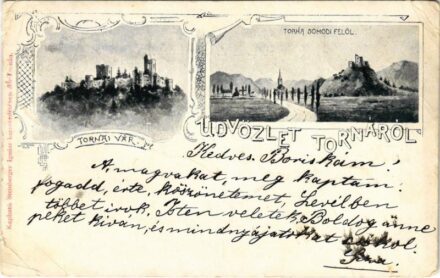 TORNA SOMODI FELŐL.
TORNAI VÁR.
ÜDVÖZLET TORNÁRÓL
Kedves Boriskám!
A magvakat, meg kaptam.
fogadd, érte köszönetemet, Levélben
többet irok. Isten veletek, Boldog ünne
peket kiván, és mindnyájatokat csókol.
Kapható Stemberger Ignácz